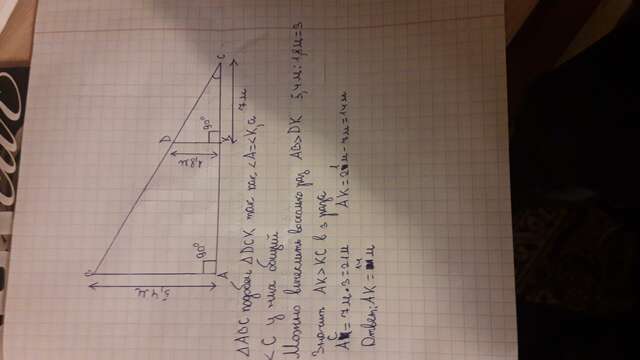 C
7м
D
1,8м
90°
K
5,4м
90°
A
ΔABC подобен ΔDCK так как <A=<K, а
<C у них общий
Можно вычислить во сколько раз AB>DK 5,4м:1,8м=3
Значит AK>KC в 3 раза
AC=7м*3=21м AK=21м-7м=14м
Ответ: AK=14м